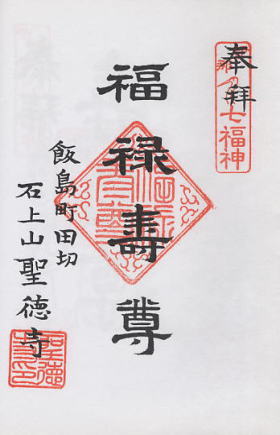 奉拝
七福神
福禄壽尊
飯島町田切
石上山聖徳寺
聖徳